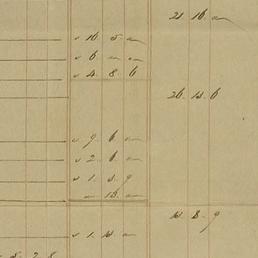 21 16 "
" 16 5 "
" 6 " "
" 4 8 6
26 18 6
" 9 6 "
" 2 6 "
" 1 8 9
" 13 "
13 8 9
" 1 13 "